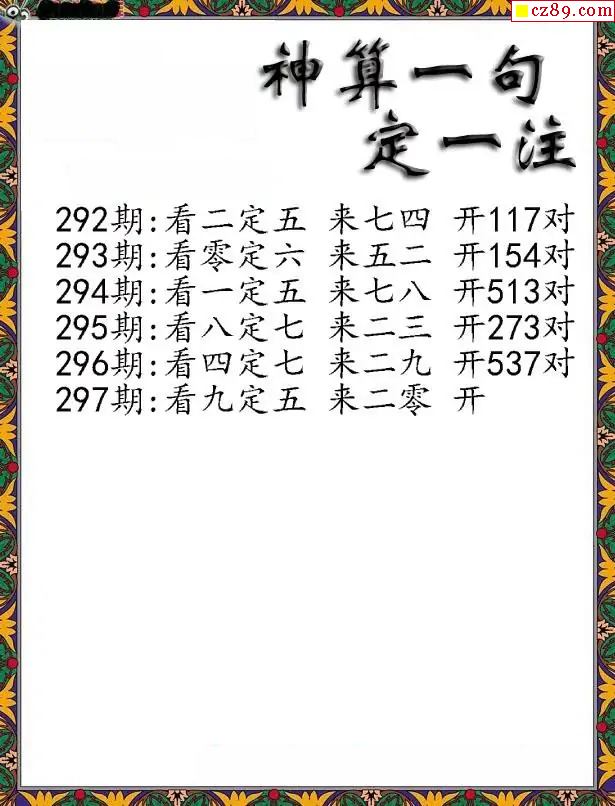 cz89.com
神算一句
定一注
292期:看二定五 来七四 开117对
293期:看零定六 来五二 开154对
294期:看一定五 来七八 开513对
295期:看八定七 来二三 开273对
296期:看四定七 来二九 开537对
297期:看九定五 来二零 开